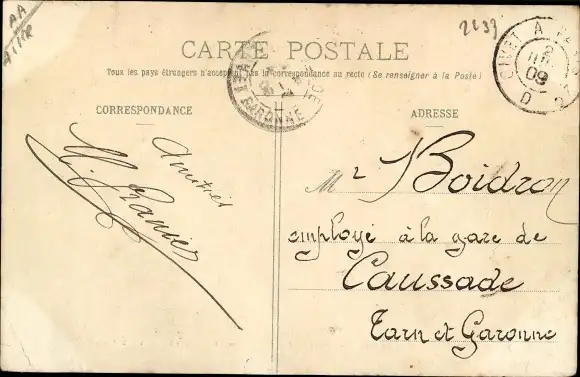 2639
CARTE POSTALE
Tous les pays étrangers n'acceptent pas la correspondance au recto (Se renseigner à la Poste)
CORRESPONDANCE
ADRESSE
Mr Boidron
employé à la gare de
Caussade
Tarn et Garonne
Amitiés
GARONNE
09